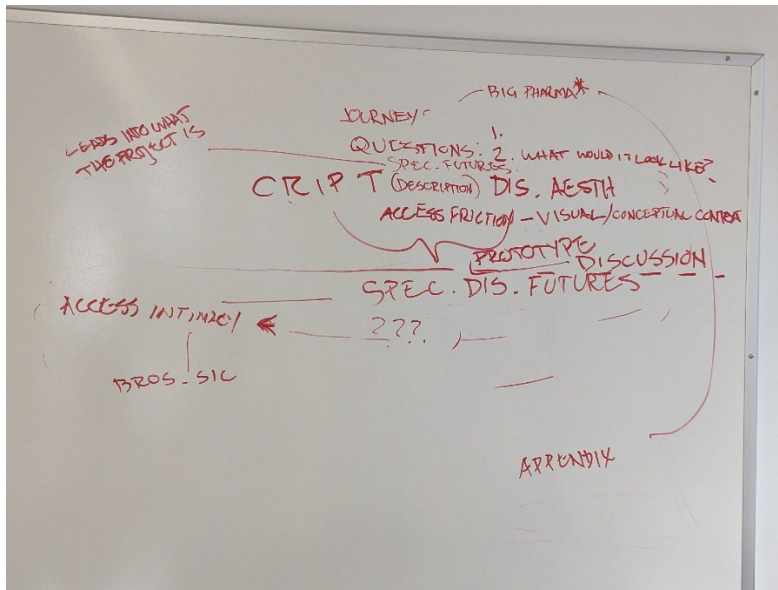 BIG PHARMA*
JOURNEY:
LEADS INTO WHAT
THE PROJECT IS
QUESTIONS: 1.
2. WHAT WOULD IT LOOK LIKE?
SPEC. FUTURES.
CRIP T (DESCRIPTION) DIS. AESTH
ACCESS FRICTION - VISUAL/CONCEPTUAL
PROTOTYPE
DISCUSSION
SPEC. DIS. FUTURES
ACCESS INTIMACY
???
BROS. SIC
APPENDIX